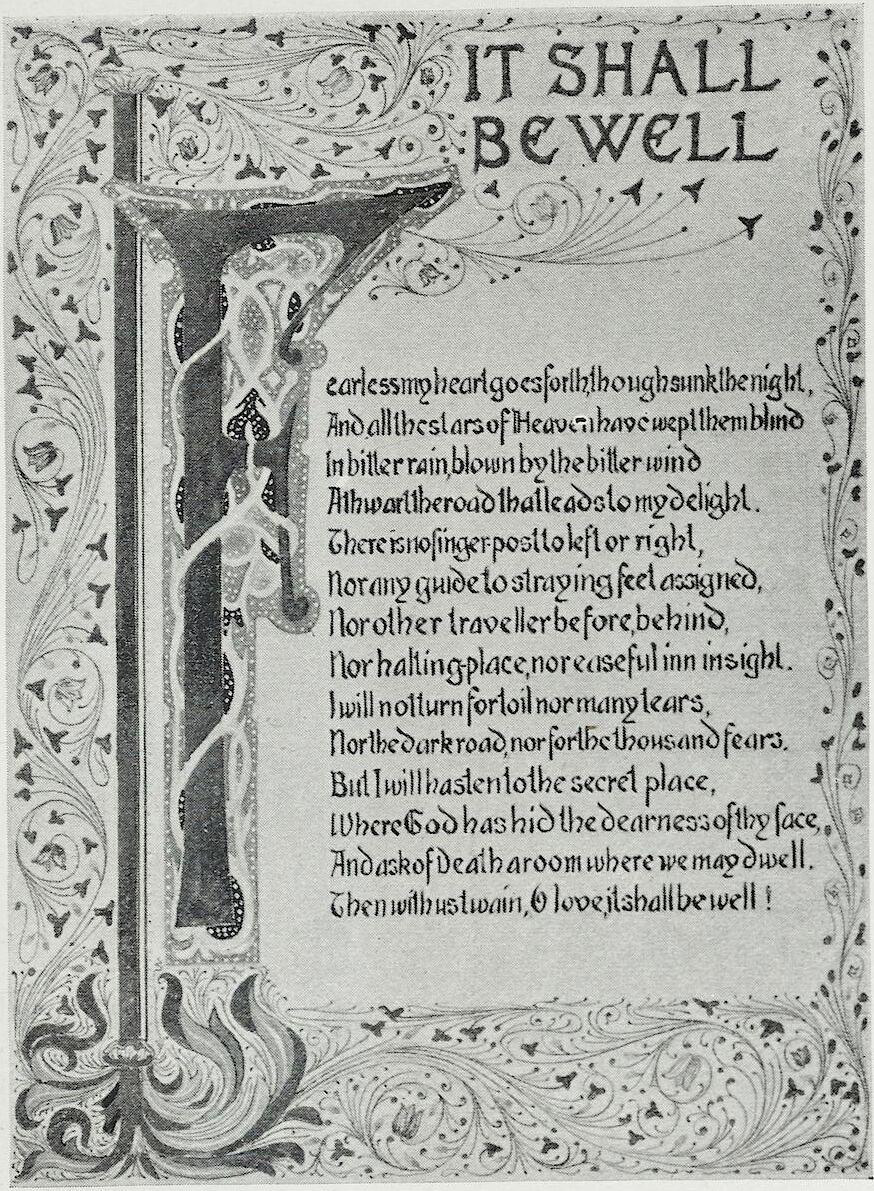 IT SHALL
BE WELL
Fearless my heart goes forth, though sunk the night,
And all the stars of Heaven have wept them blind
In bitter rain, blown by the bitter wind
Athwart the road that leads to my delight.
There is no finger-post to left or right,
Nor any guide to straying feet assigned,
Nor other traveller before, behind,
Nor halting-place, nor easeful inn in sight.
I will not turn for toil nor many tears,
Nor the dark road, nor for the thousand fears.
But I will hasten to the secret place,
Where God has hid the dearness of thy face,
And ask of Death a room where we may dwell.
Then with us twain, O love, it shall be well!